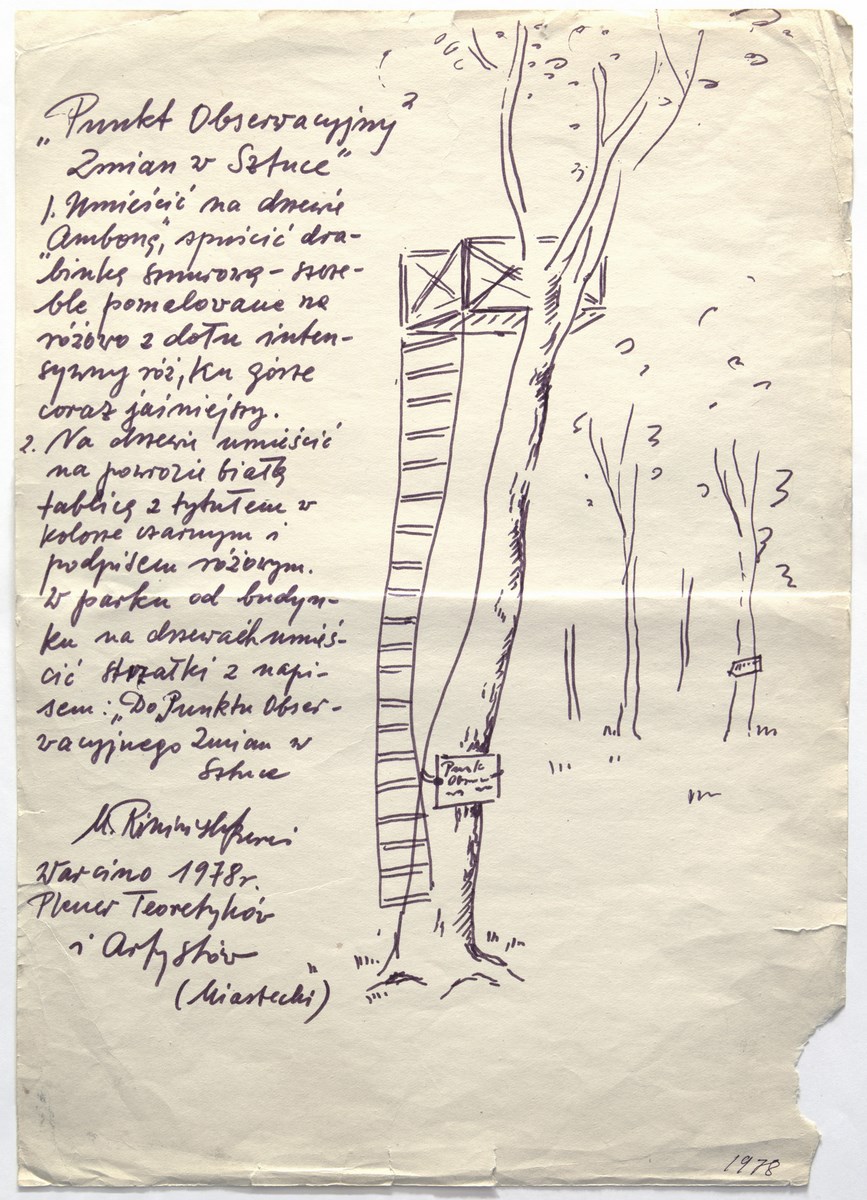 „Punkt Obserwacyjny
Zmian w Sztuce"
1. Umieścić na drzewie
"Ambonę", spuścić dra-
binkę sznurową - szcze-
ble pomalowane na
różowo z dołu inten-
sywny róż, ku górze
coraz jaśniejszy.
2. Na drzewie umieścić
na powrozie białą
tablicę z tytułem w
kolorze czarnym i
podpisem różowym.
W parku od budyn-
ku na drzewach umieś-
cić strzałki z napi-
sem: „Do Punktu Obser-
wacyjnego Zmian w
Sztuce
Warcino 1978r.
Plener Teoretyków
i Artystów
(Miastecki)
Punk
Obserw
1978